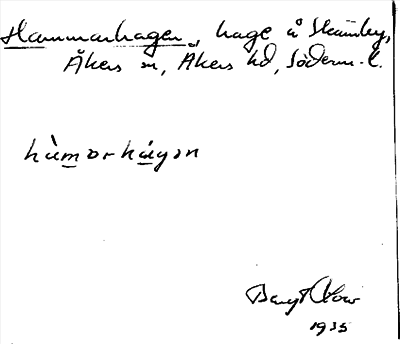 Hammarhagen, hage å Skämby,
Åkers sn, Åkers hd, Söderm. l.
hàmorhágən
Bengt Olow
1935